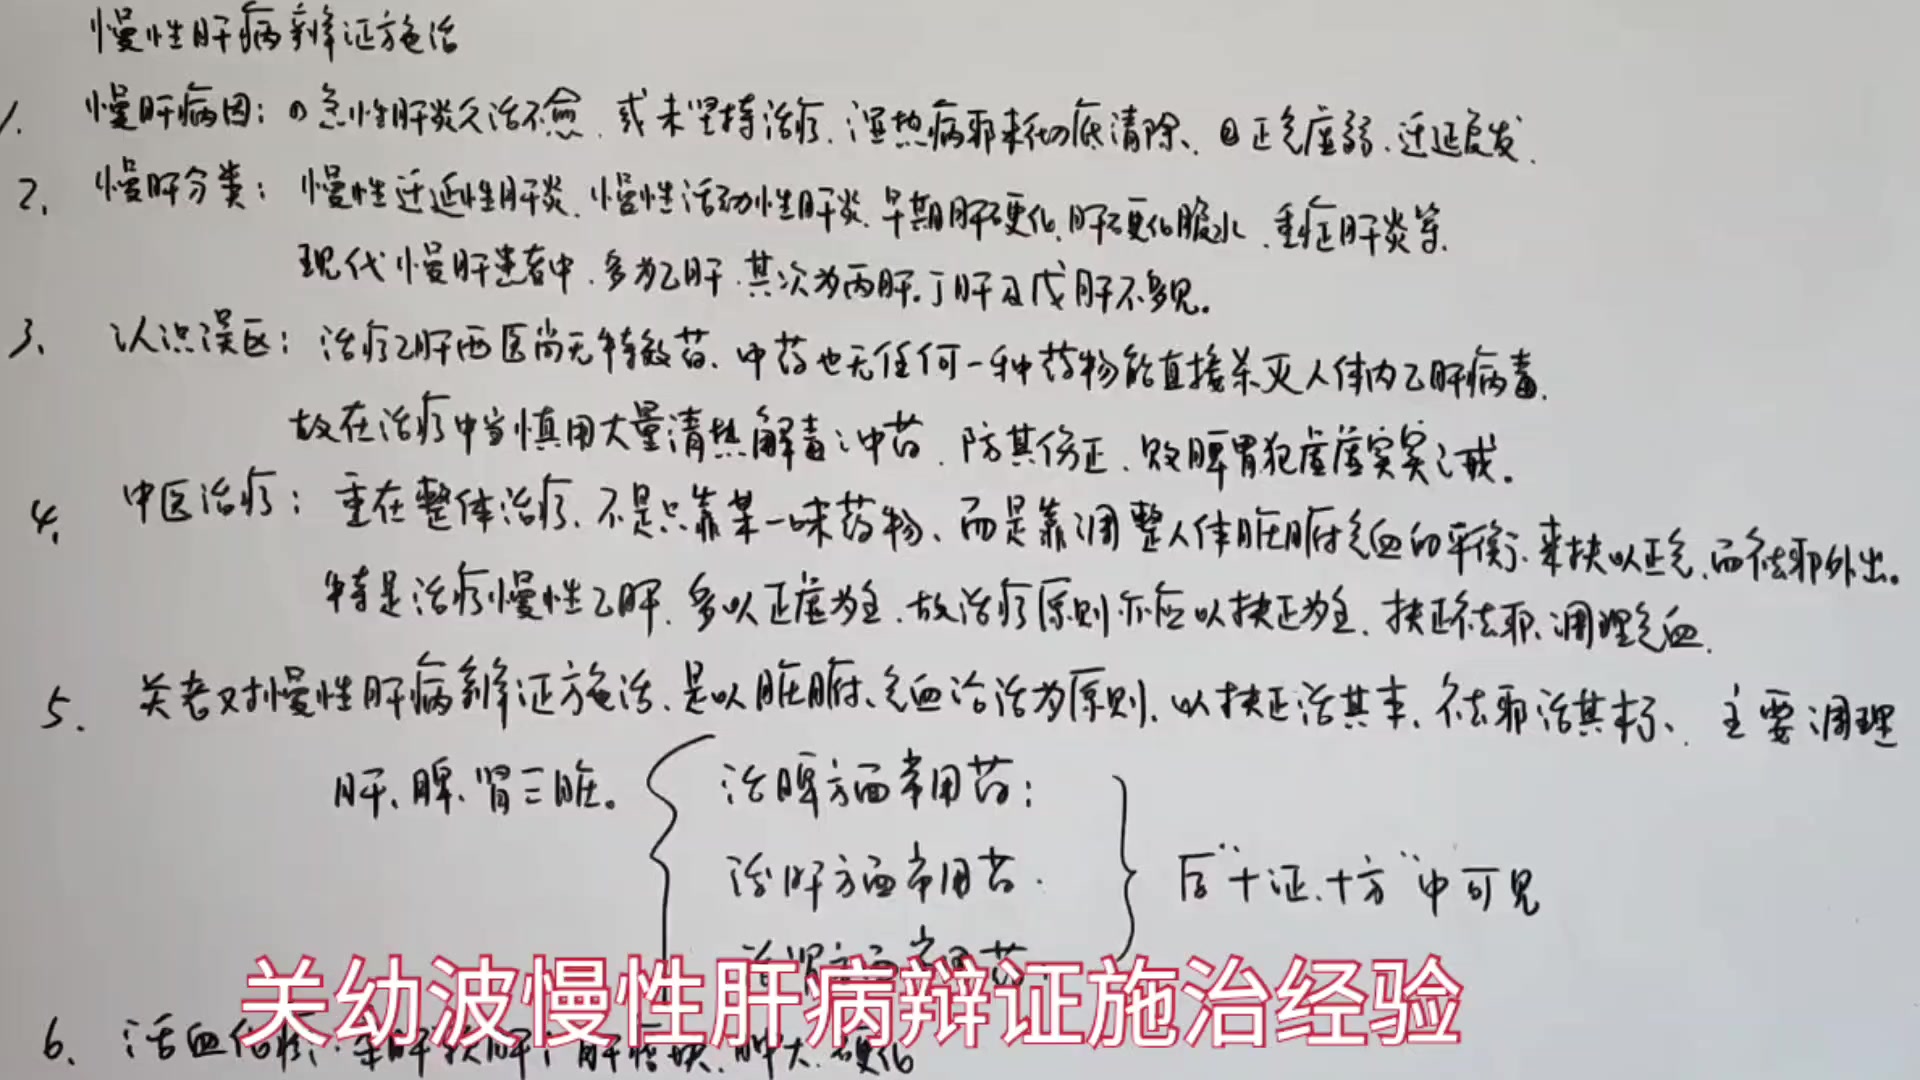 慢性肝病辨证施治
1. 慢肝病因：①急性肝炎久治不愈、或未坚持治疗、湿热病邪未彻底清除、②正气虚弱、迁延复发.
2. 慢肝分类：慢性迁延性肝炎、慢性活动性肝炎、早期肝硬化、肝硬化腹水、重症肝炎等.
现代慢肝患者中、多为乙肝.其次为丙肝.丁肝及戊肝不多见。
3. 认识误区：治疗乙肝西医尚无特效药、中药也无任何一种药物能直接杀灭人体内乙肝病毒.
故在治疗中当慎用大量清热解毒之中药、防其伤正、败脾胃犯虚虚实实之戒。
4. 中医治疗：重在整体治疗、不是只靠某一味药物、而是靠调整人体脏腑气血的平衡、来扶以正气、而祛邪外出。
特是治疗慢性乙肝、多以正虚为主、故治疗原则亦应以扶正为主、扶正祛邪、调理气血.
5. 关老对慢性肝病辨证施治、是以脏腑、气血论治为原则、以扶正治其本、祛邪治其标、主要调理
肝、脾、肾三脏。
治脾方面常用药：
治肝方面常用药.
后“十证、十方”中可见
关幼波慢性肝病辩证施治经验
6. 活血化 肿大、硬化